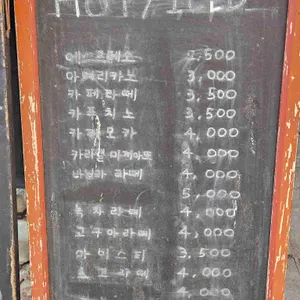 HOT / ICED
에스프레소 2,500
아메리카노 3,000
카페라떼 3,500
카푸치노 3,500
카페모카 4,000
카라멜 마끼아또 4,000
바닐라 라떼 4,000
5,000
녹차라떼 4,000
고구마라떼 4,000
아이스티 3,500
초코라떼 4,000
4,000